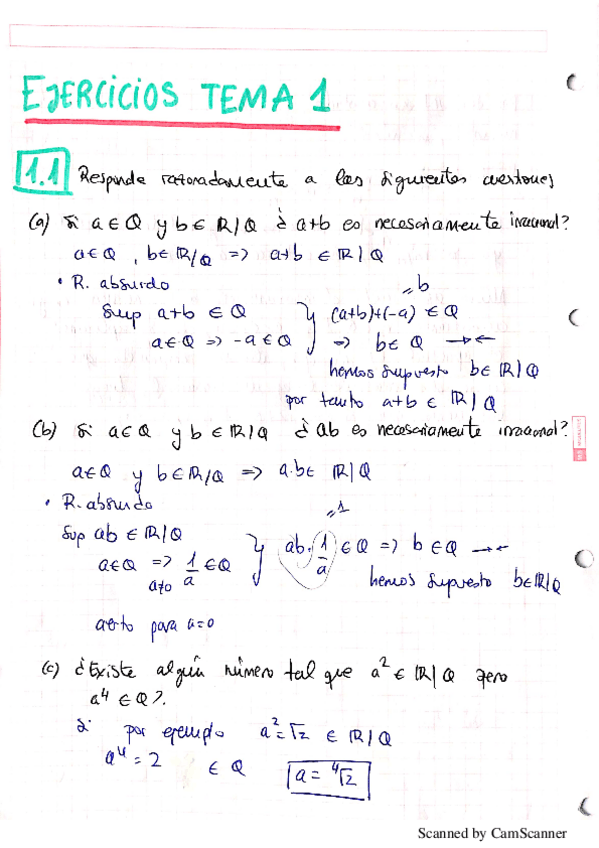 EJERCICIOS TEMA 1
1.1 Responde razonadamente a las siguientes cuestiones
(a) Si a∈Q y b∈ℝ/Q ¿a+b es necesariamente irracional?
a∈Q , b∈ℝ/Q => a+b ∈ℝ/Q
• R. absurdo =b
Sup a+b ∈ Q } (a+b)+(-a) ∈ Q
a∈Q => -a∈Q => b∈ Q →←
hemos supuesto b∈ℝ/Q
por tanto a+b ∈ ℝ/Q
(b) Si a∈Q y b∈ℝ/Q ¿ab es necesariamente irracional?
a∈Q y b∈ℝ/Q => a·b∈ ℝ/Q
• R. absurdo =1
Sup ab ∈ℝ/Q } ab·1/a ∈Q => b∈Q →←
a∈Q => 1/a ∈Q
a≠0 hemos supuesto b∈ℝ/Q
para a=0
(c) ¿Existe algún número tal que a² ∈ℝ/Q pero
a⁴ ∈Q?.
Si por ejemplo a²=√2 ∈ ℝ/Q
a⁴=2 ∈ Q a = ⁴√2
Scanned by CamScanner